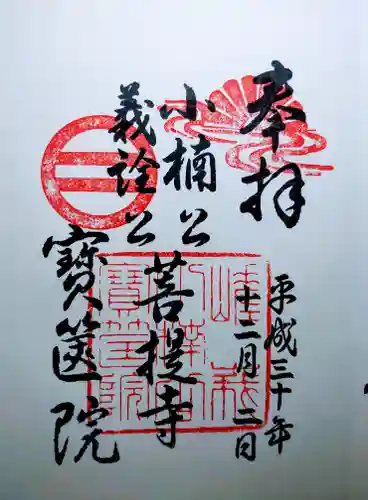 奉拝
平成三十年
十二月二日
小楠公
義詮公
菩提寺
寳篋院